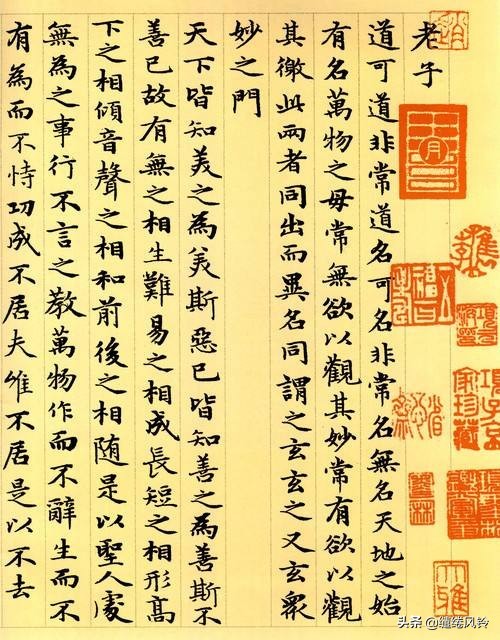 老子
道可道非常道名可名非常名無名天地之始
有名萬物之母常無欲以觀其妙常有欲以觀
其徼此兩者同出而異名同謂之玄玄之又玄衆
妙之門
天下皆知美之為美斯惡已皆知善之為善斯不
善已故有無之相生難易之相成長短之相形高
下之相傾音聲之相和前後之相随是以聖人處
無為之事行不言之教萬物作而不辭生而不
有為而不恃功成不居夫唯不居是以不去
項子京
家珍藏
头条 @缱绻风铃